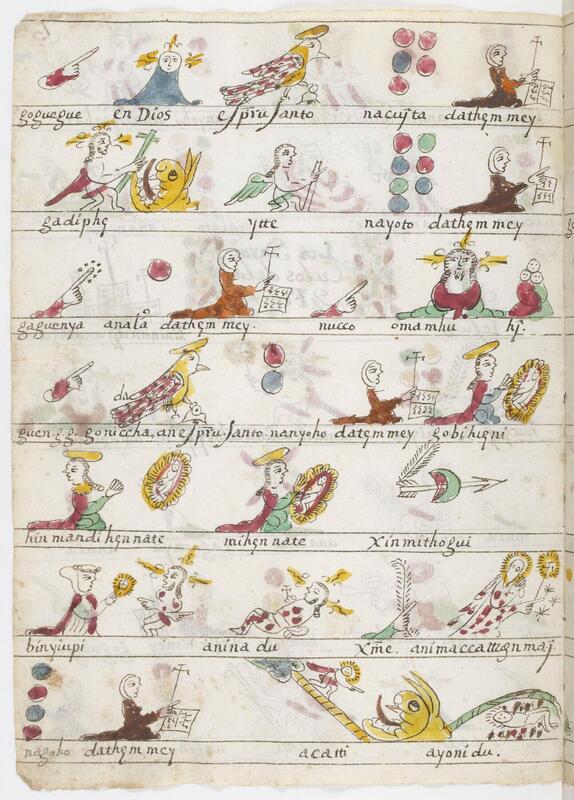 goguegue en Dios espru santo nacuȷta dathęm mey
gadiphę ytte nayoto dathęm mey
gaguenya anała dathęm mey. nucco omamhu hȷ.
da
guen. g̃g. goniccha, an espru santo nanyoho datęm mey gobihięni
hin mandi hęn nate mihęn nate xinmithogui
binyiupi anina du xm̃e. animaccattęn maȷ
nagoho dathęm mey acatti ayonidu.